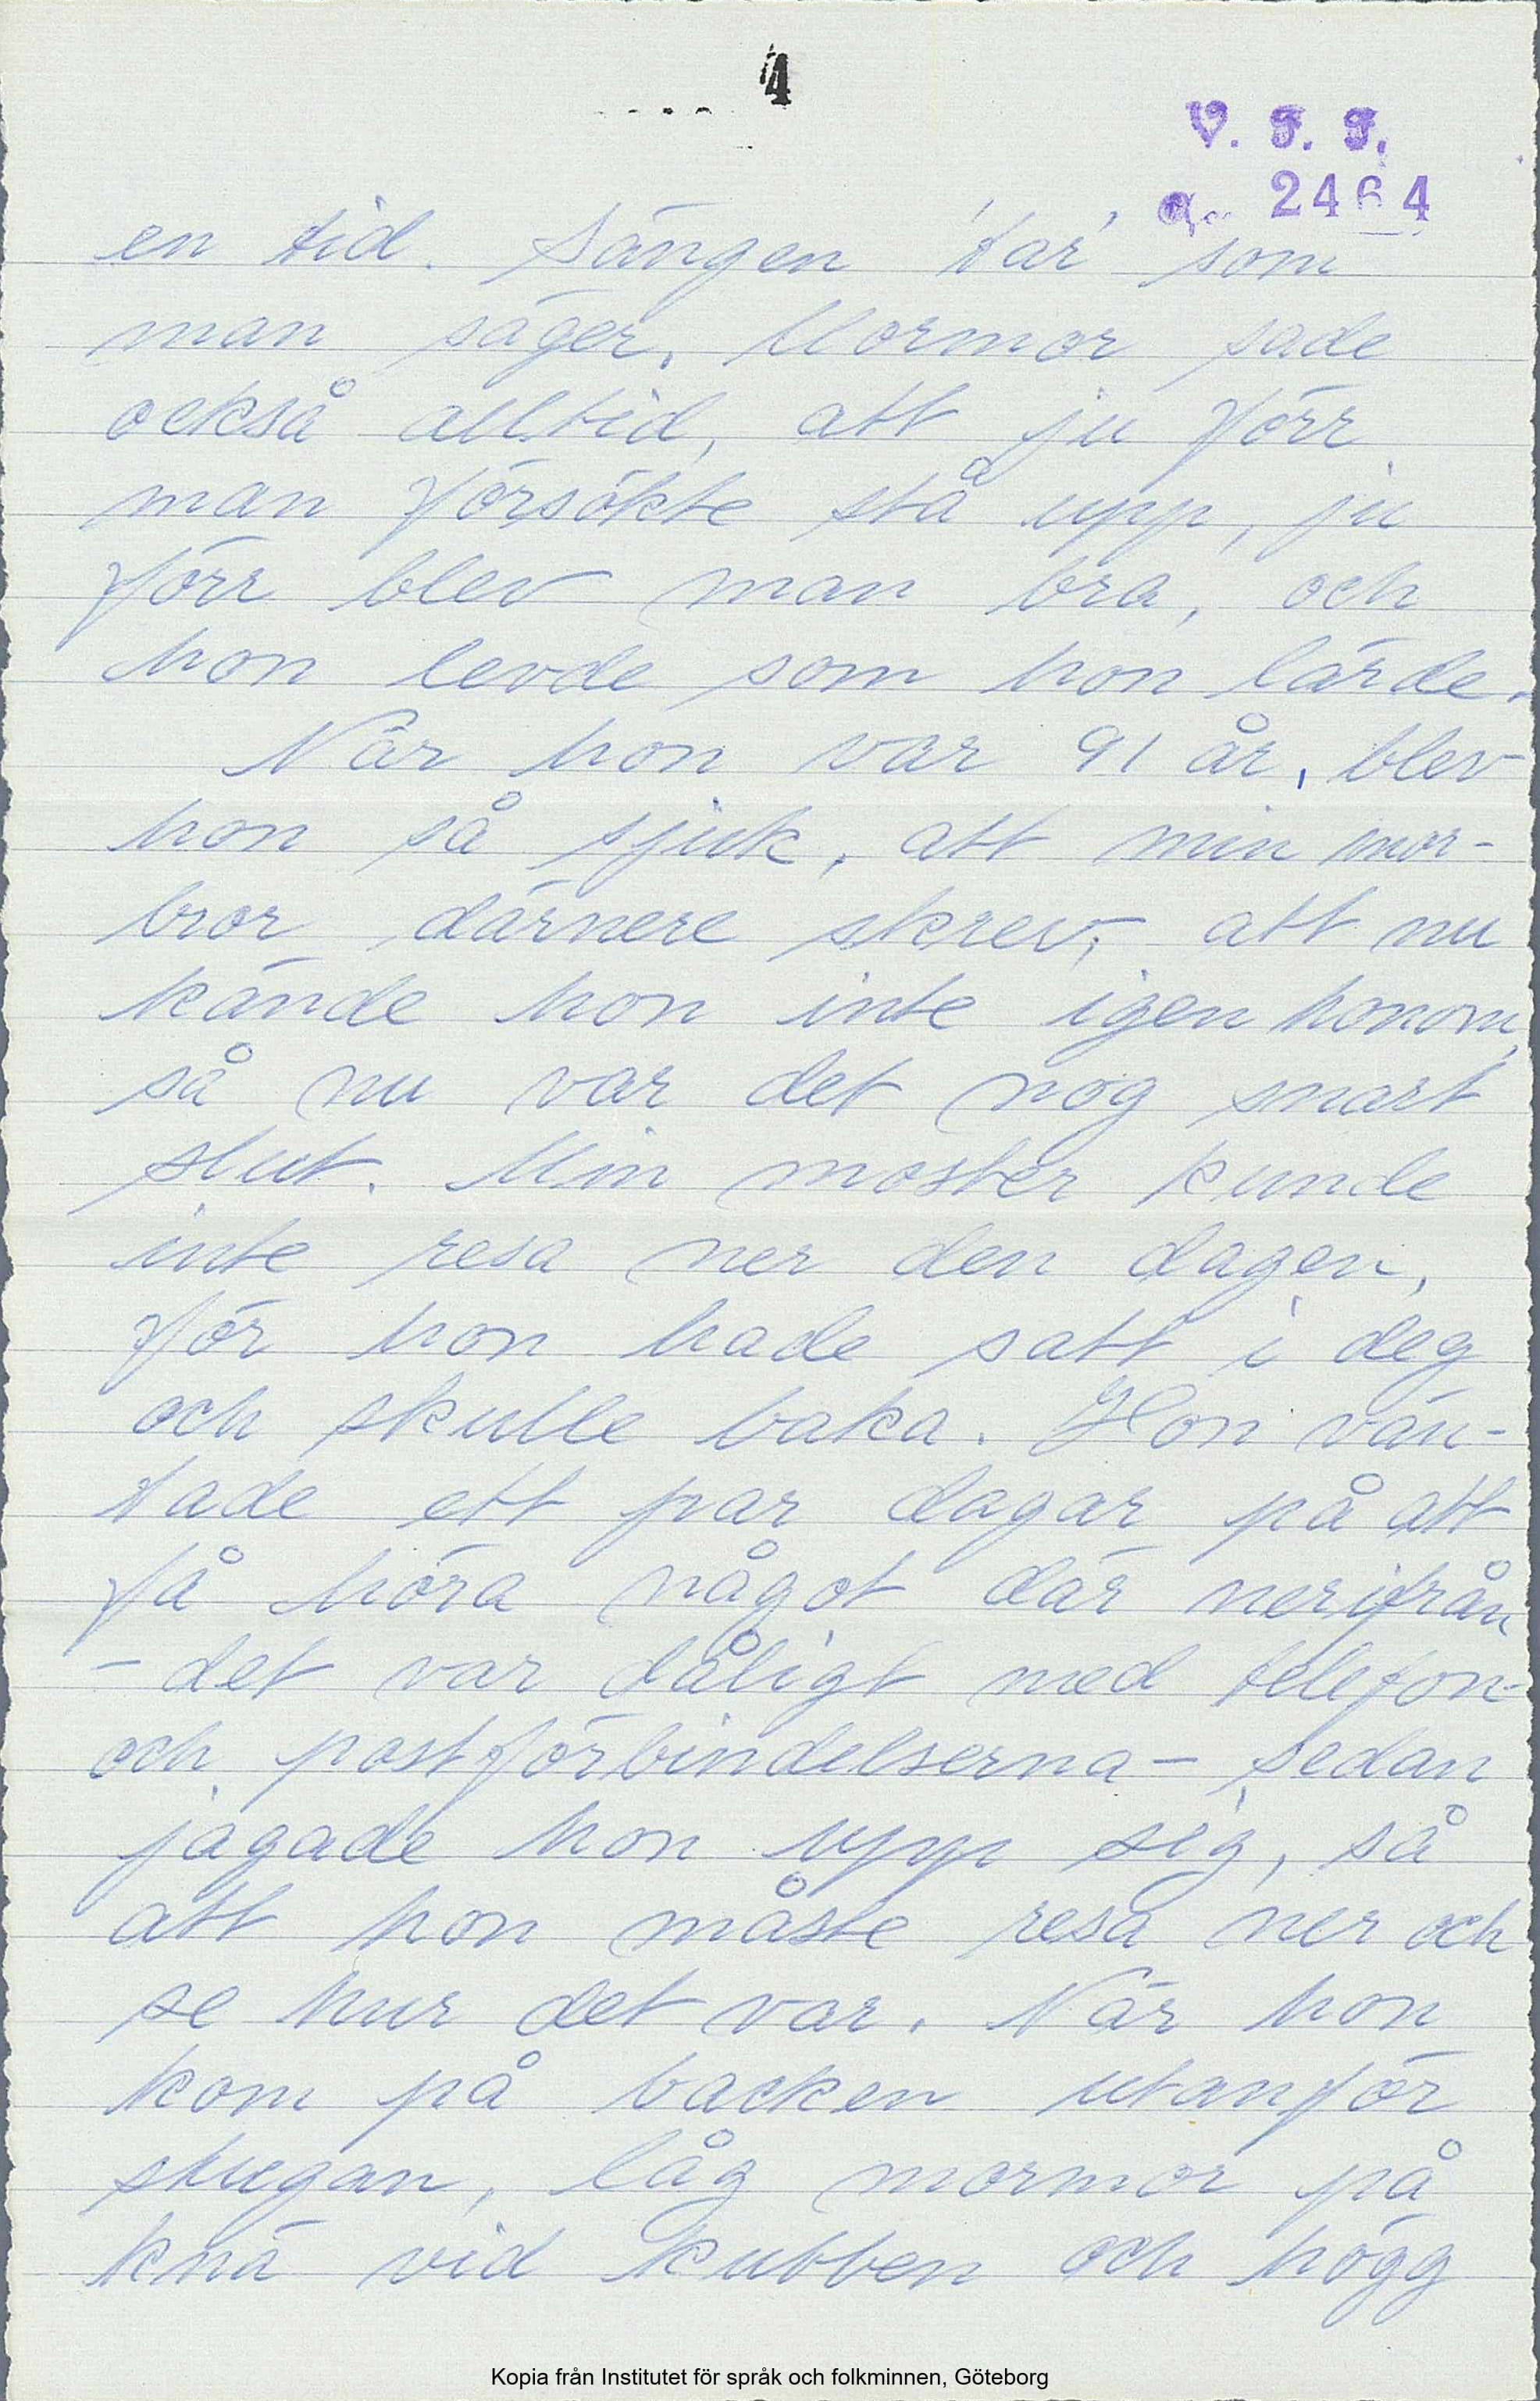 4
V. F. F.
a.. 2464
en tid. Sängen 'tar' som
man säger. Mormor sade
också alltid, att ju förr
man försökte stå upp, ju
förr blev man bra, och
hon levde som hon lärde.
När hon var 91 år, blev
hon så sjuk, att min mor-
bror därnere skrev, att nu
kände hon inte igen honom,
så nu var det nog snart
slut. Min moster kunde
inte resa ner den dagen,
för hon hade satt i deg
och skulle baka. Hon vän-
tade ett par dagar på att
få höra något där nerifrån
- det var dåligt med telefon-
och postförbindelserna - sedan
jagade hon upp sig, så
att hon måste resa ner och
se hur det var. När hon
kom på backen utanför
stugan, låg mormor på
knä vid kubben och högg
Kopia från Institutet för språk och folkminnen, Göteborg